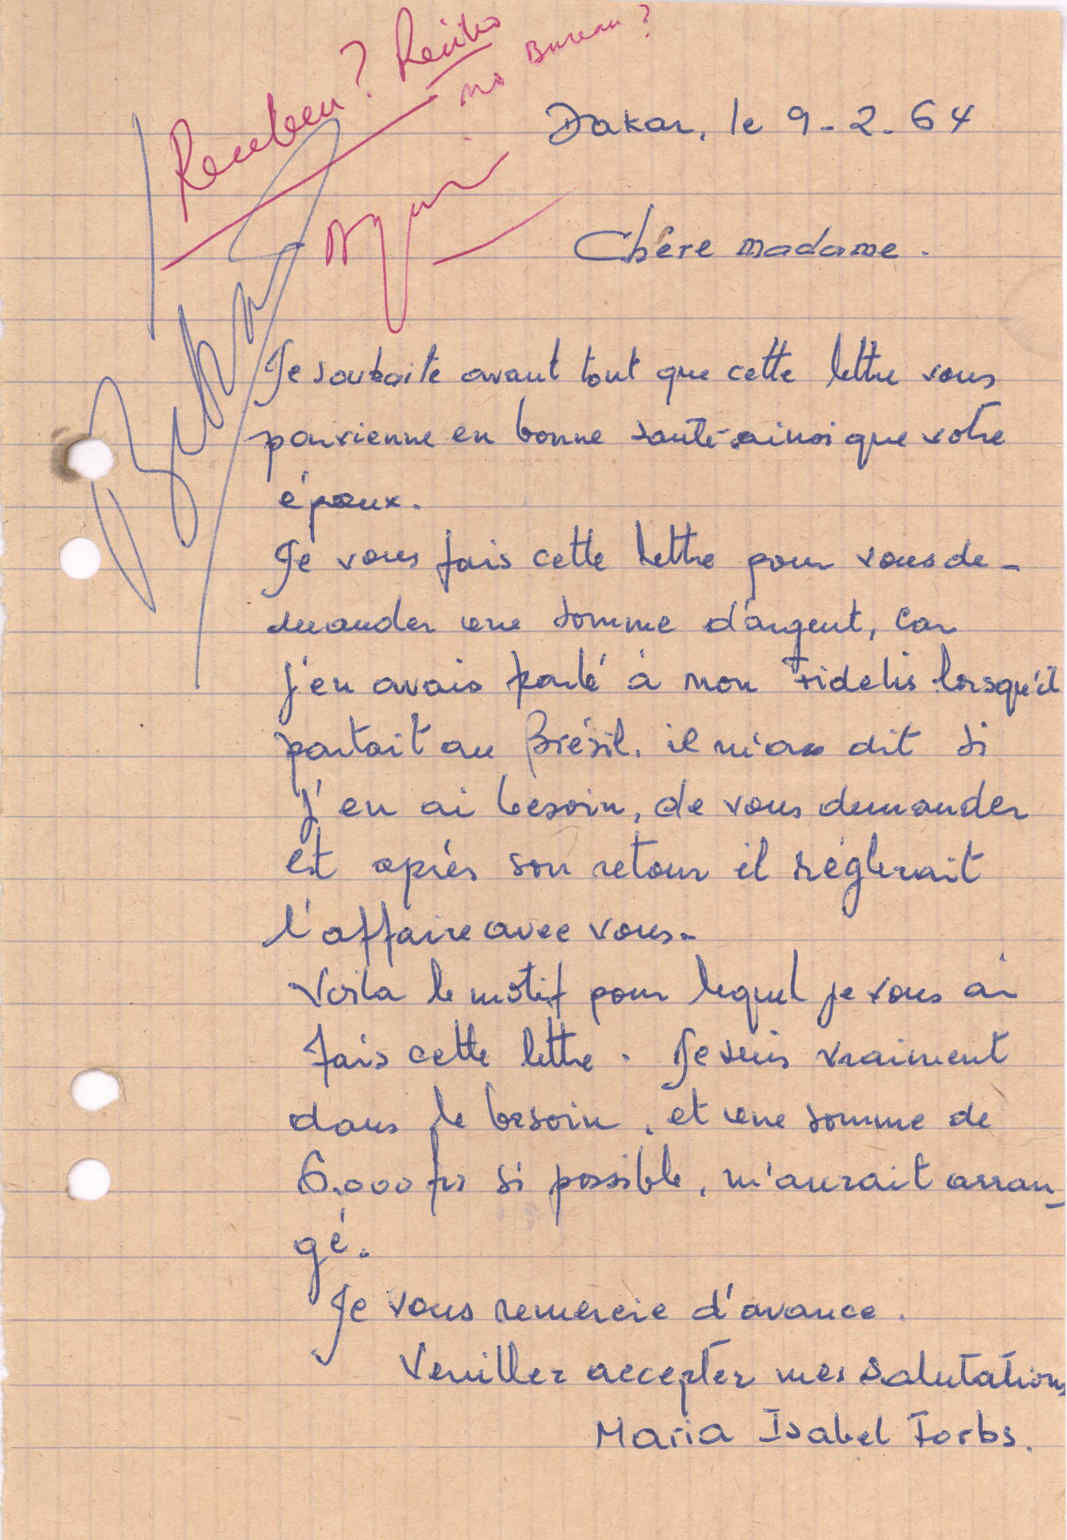 Recebeu? Recibo
no Bureau?
Dakar, le 9-2-64
Chère madame.
Je souhaite avant tout que cette lettre vous
parvienne en bonne santé ainsi que votre
époux.
Je vous fais cette lettre pour vous de-
mander une somme d'argent, car
j'en avais parlé à mon Fidelis lorsqu'il
partait au Brésil. il m'a dit si
j'en ai besoin, de vous demander
et après son retour il règlerait
l'affaire avec vous.
Voila le motif pour lequel je vous ai
fais cette lettre. Je suis vraiment
dans le besoin, et une somme de
6.000 frs si possible, m'aurait arran-
gé.
Je vous remercie d'avance.
Veuillez accepter mes salutations
Maria Isabel Forbs.